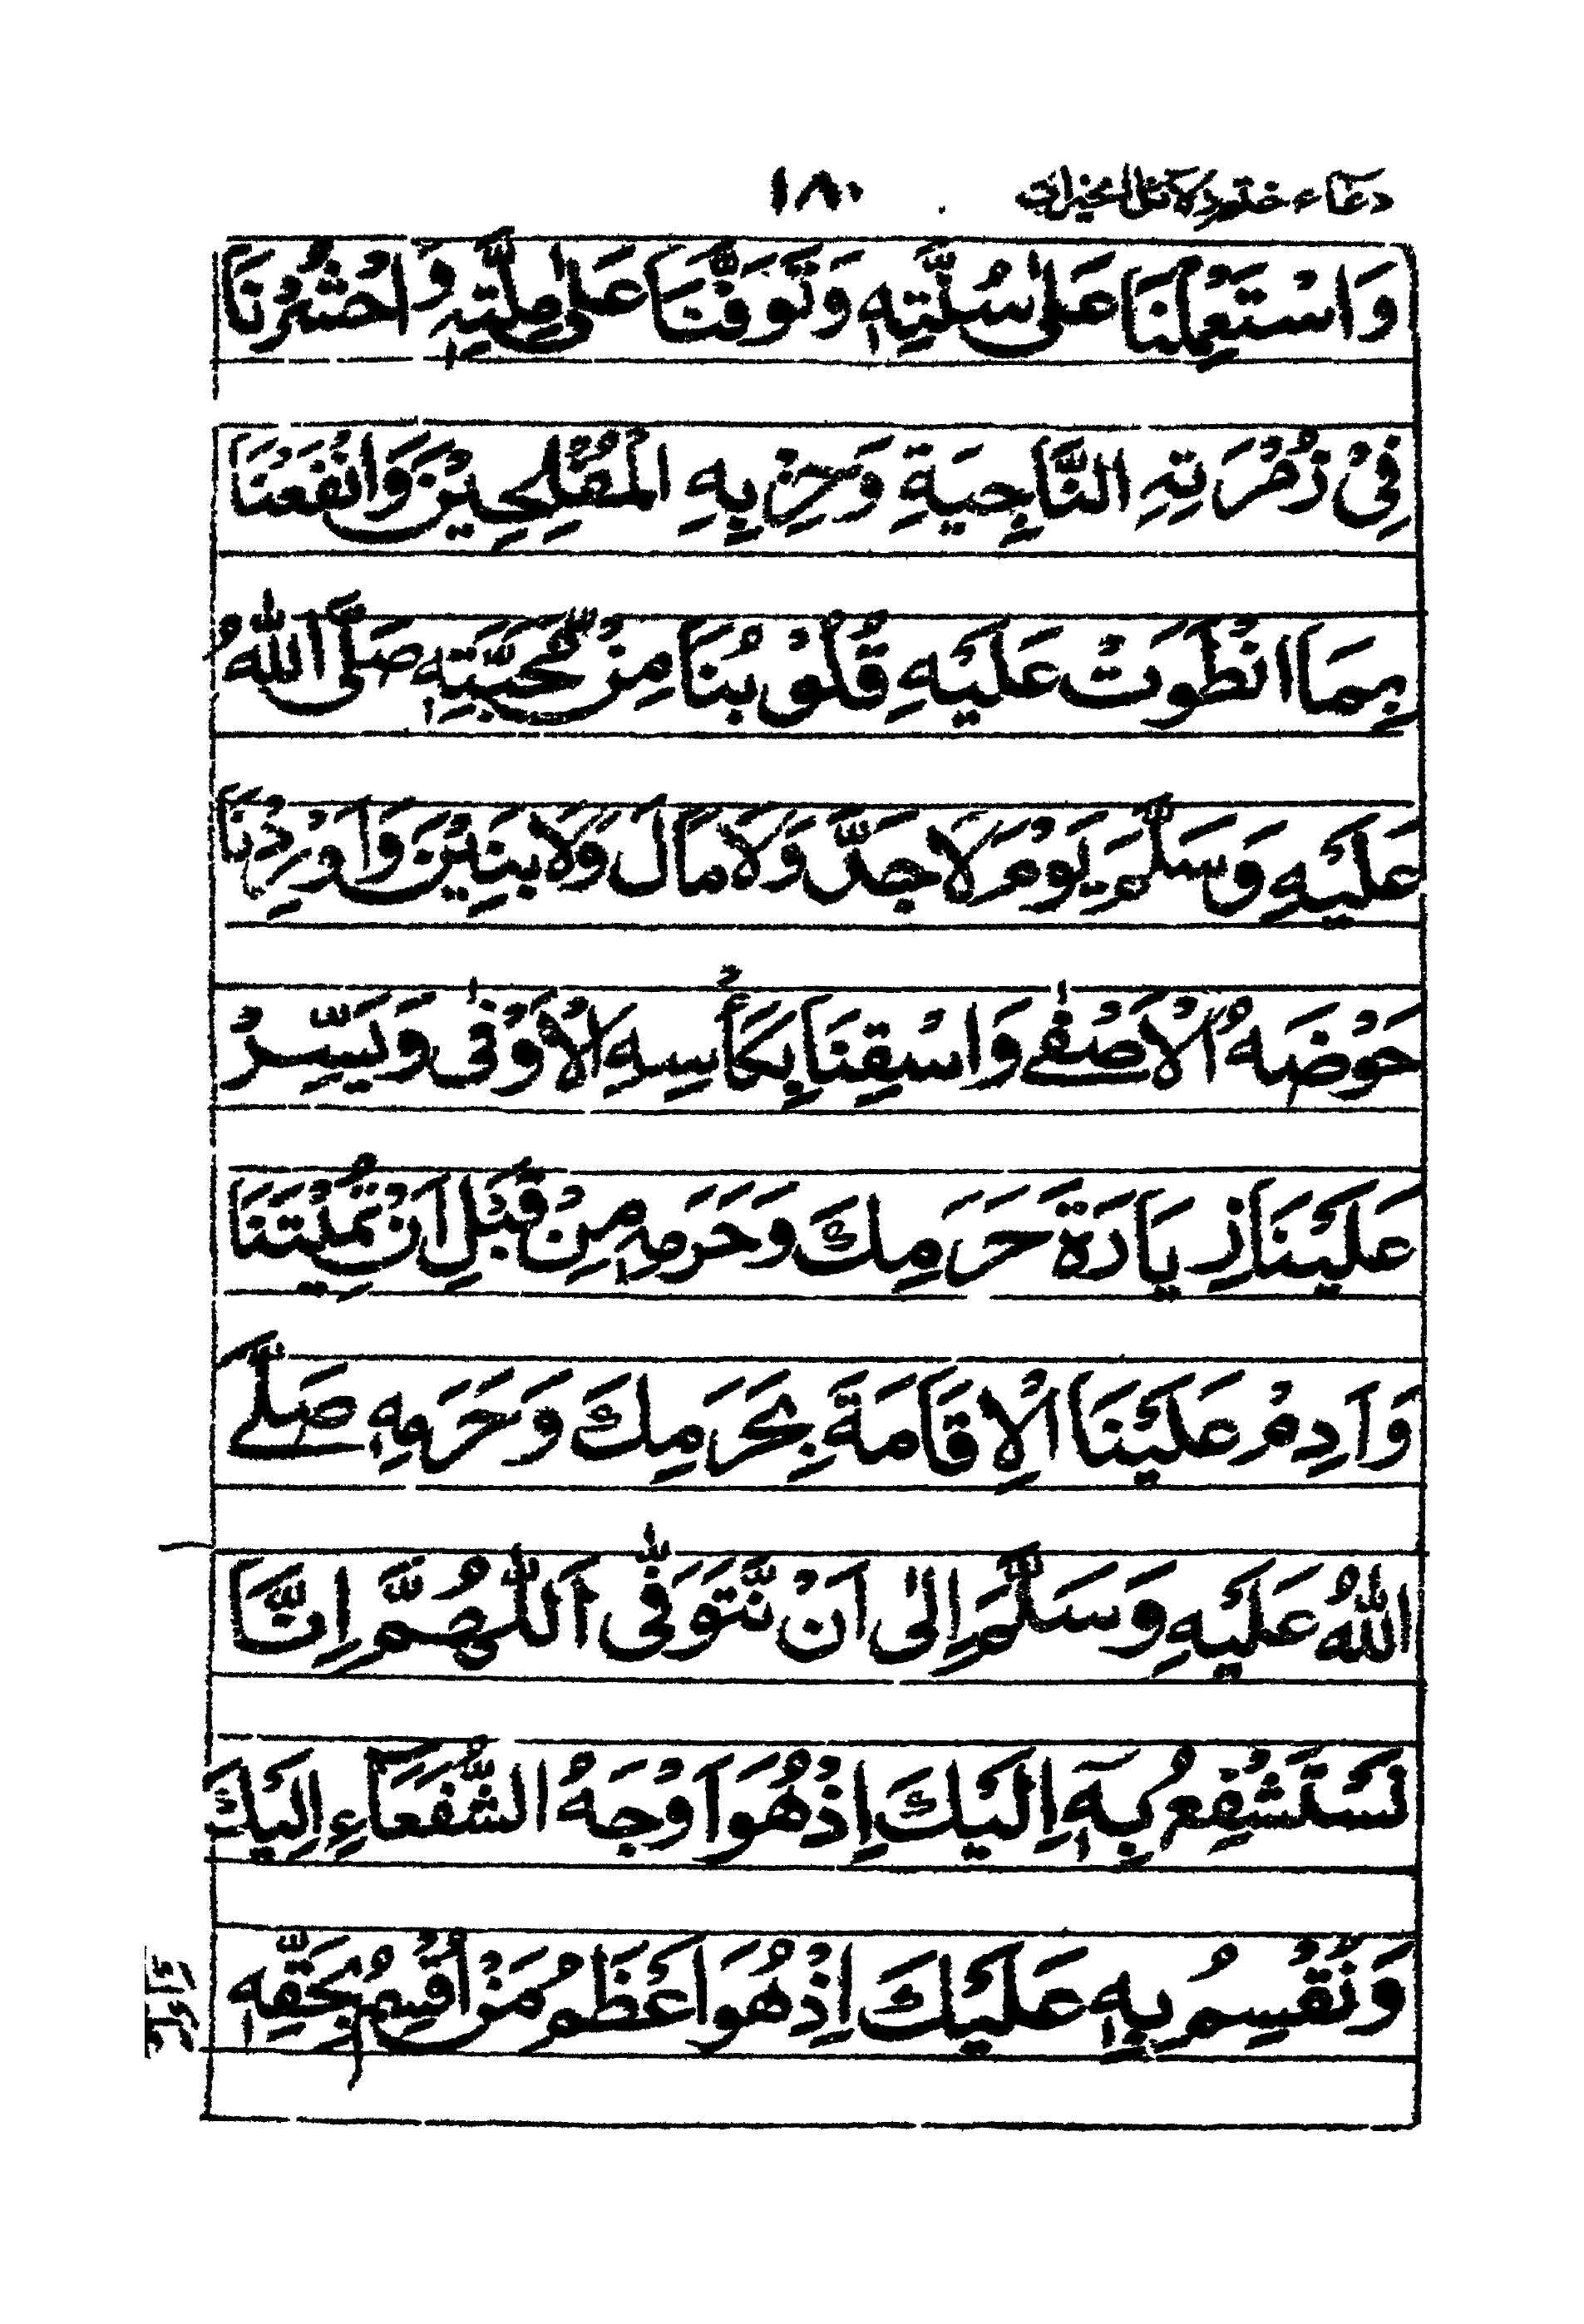 دعآء ختم دلائل الخیرات ۱۸۰
وَاسْتَعْمِلْنَا عَلٰى سُنَّتِهٖ وَتَوَفَّنَا عَلٰى مِلَّتِهٖ وَاحْشُرْنَا
فِىْ زُمْرَتِهِ النَّاجِيَةِ وَحِزْبِهِ الْمُفْلِحِيْنَ وَانْفَعْنَا
بِمَا انْطَوَتْ عَلَيْهِ قُلُوْبُنَا مِنْ مَّحَبَّتِهٖ صَلَّى اللّٰهُ
عَلَيْهِ وَسَلَّمَ يَوْمَ لَا جَدَّ وَلَا مَالَ وَلَا بَنِيْنَ وَاَوْرِدْنَا
حَوْضَهُ الْاَصْفٰى وَاسْقِنَا بِكَأْسِهِ الْاَوْفٰى وَيَسِّرْ
عَلَيْنَا زِيَادَةَ حَرَمِكَ وَحَرَمِهٖ مِنْ قَبْلِ اَنْ تُمِيْتَنَا
وَاَدِمْ عَلَيْنَا الْاِقَامَةَ بِحَرَمِكَ وَحَرَمِهٖ صَلَّى
اللّٰهُ عَلَيْهِ وَسَلَّمَ اِلٰى اَنْ نَّتَوَفّٰى اَللّٰهُمَّ اِنَّا
نَسْتَشْفِعُ بِهٖٓ اِلَيْكَ اِذْ هُوَ اَوْجَهُ الشُّفَعَآءِ اِلَيْكَ
وَنُقْسِمُ بِهٖ عَلَيْكَ اِذْ هُوَ اَعْظَمُ مَنْ اُقْسِمَ بِحَقِّهٖ